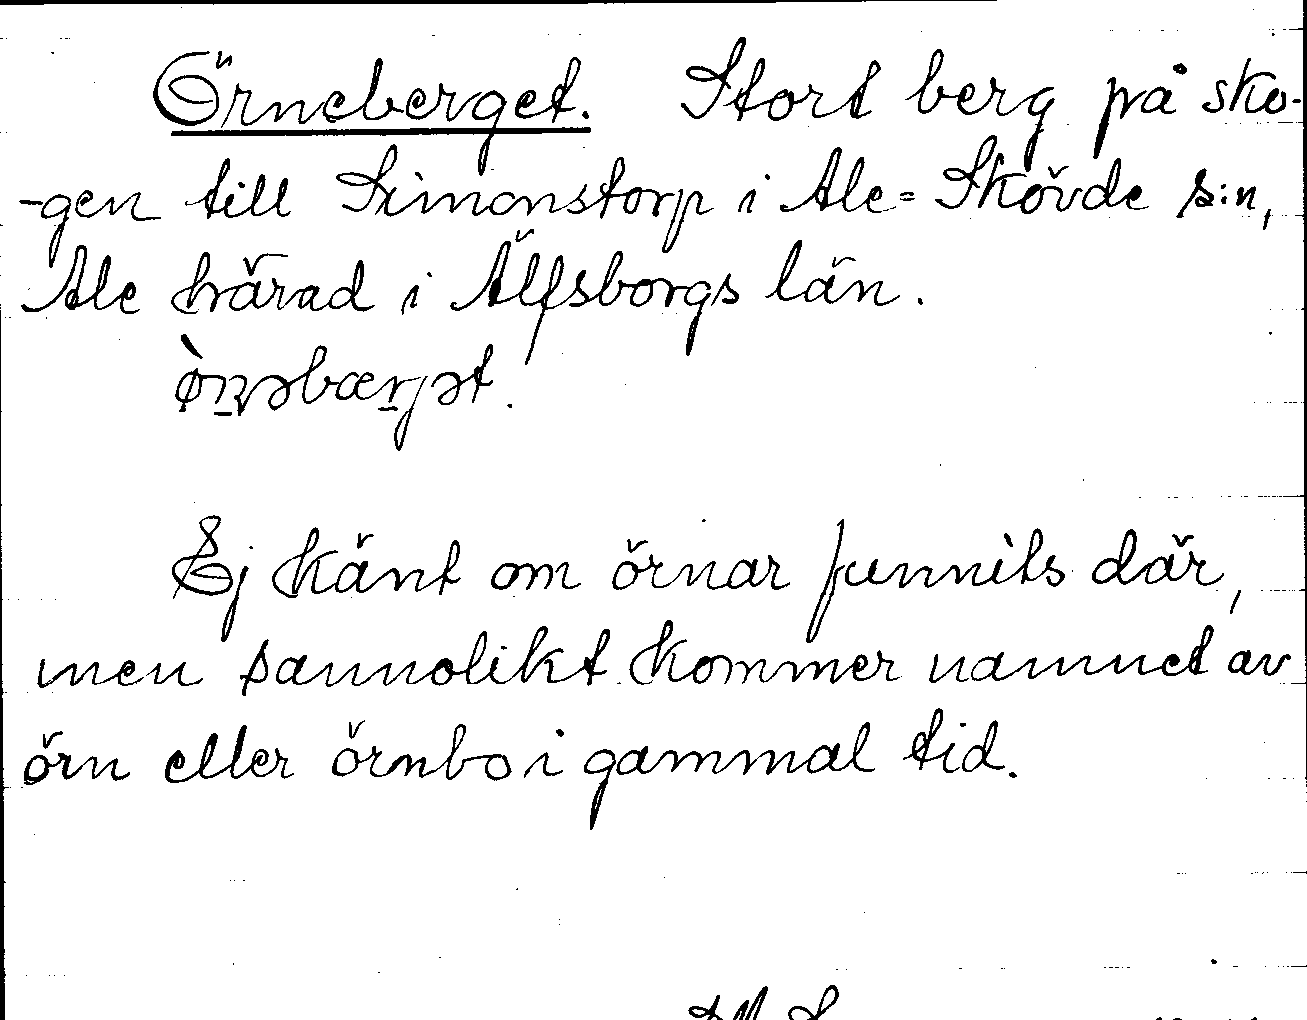 Örneberget. Stort berg på sko-
-gen till Simonstorp i Ale=Skövde s:n,
Ale härad i Älfsborgs län.
Ej känt om örnar funnits där,
men sannolikt kommer namnet av
örn eller örnbo i gammal tid.